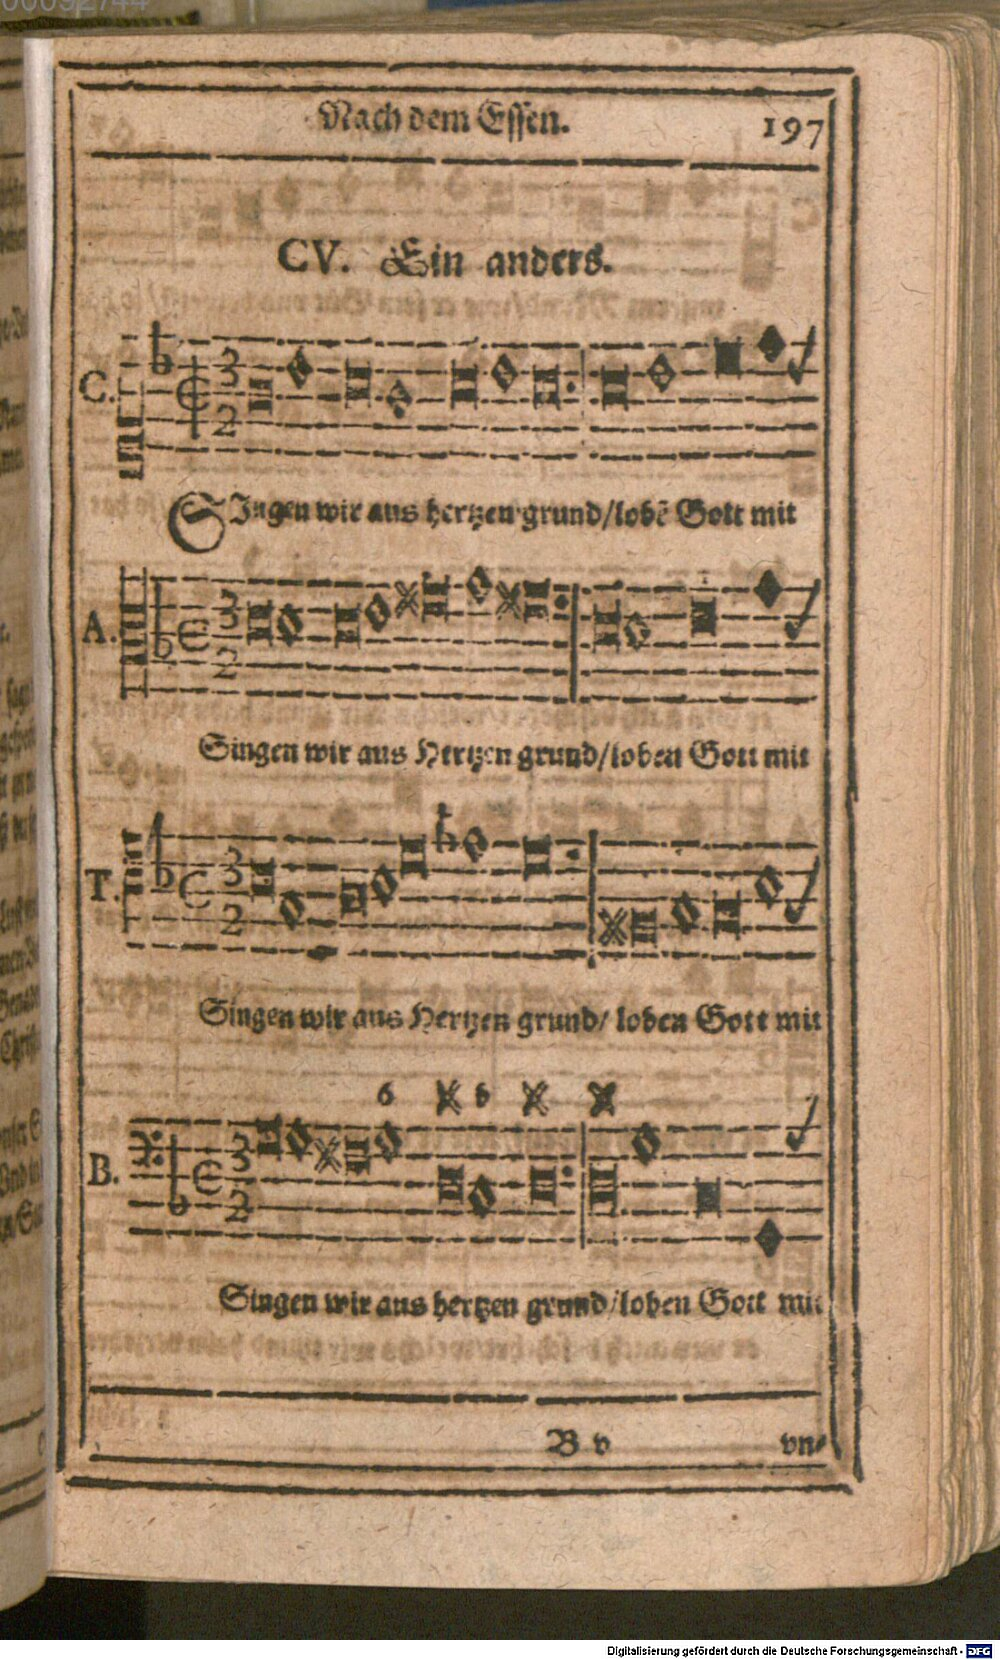 00092744
Nach dem Essen. 197
CV. Ein anders.
C.
SIngen wir aus hertzen grund/lobẽ Gott mit
A.
Singen wir aus Hertzen grund/loben Gott mit
T.
Singen wir aus Hertzen grund/ loben Gott mit
6 6
B.
Singen wir aus hertzen grund/loben Gott mit
B v vn-
Digitalisierung gefördert durch die Deutsche Forschungsgemeinschaft - DFG